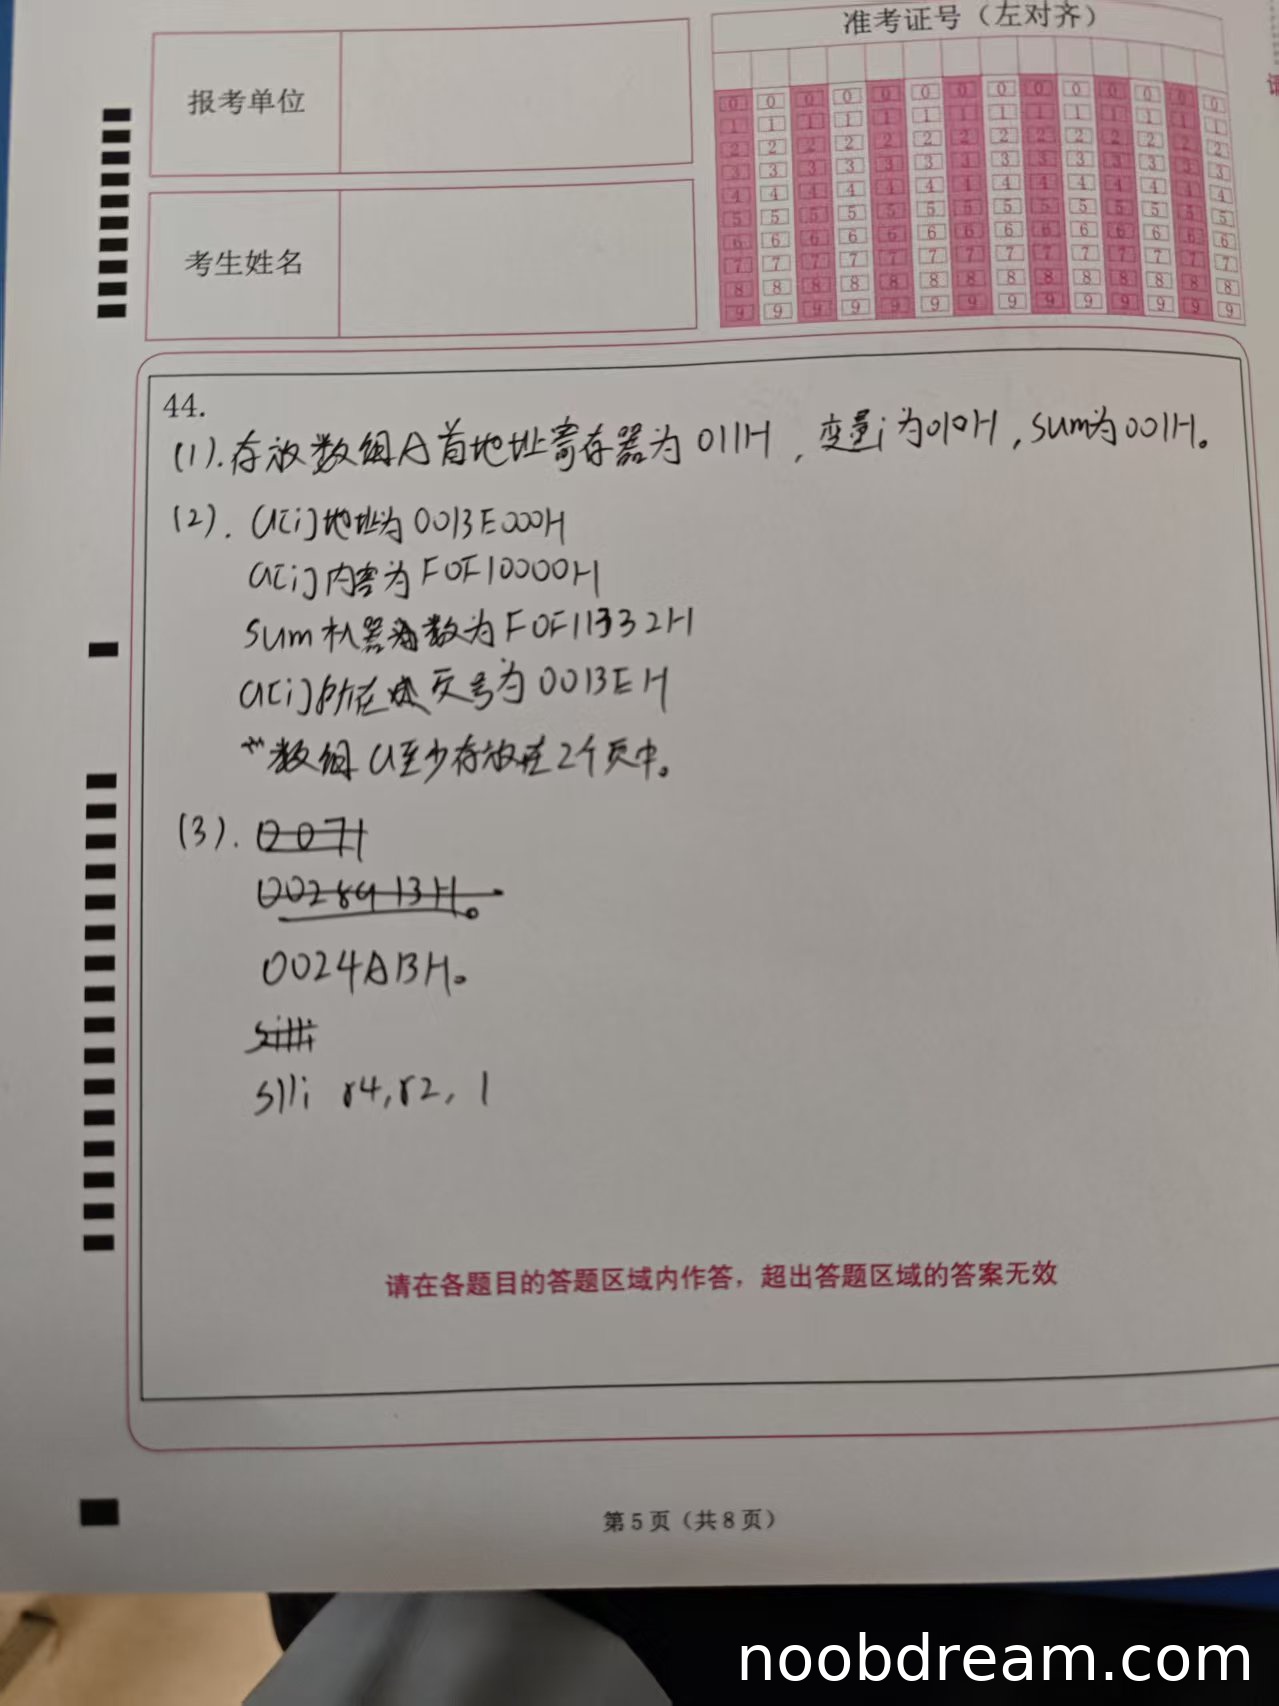 准考证号（左对齐）
报考单位
考生姓名
0 0 0 0 0 0 0 0 0 0 0 0 0 0
1 1 1 1 1 1 1 1 1 1 1 1 1 1
2 2 2 2 2 2 2 2 2 2 2 2 2 2
3 3 3 3 3 3 3 3 3 3 3 3 3 3
4 4 4 4 4 4 4 4 4 4 4 4 4 4
5 5 5 5 5 5 5 5 5 5 5 5 5 5
6 6 6 6 6 6 6 6 6 6 6 6 6 6
7 7 7 7 7 7 7 7 7 7 7 7 7 7
8 8 8 8 8 8 8 8 8 8 8 8 8 8
9 9 9 9 9 9 9 9 9 9 9 9 9 9
44.
(1).存放数组A首地址寄存器为011H，变量i为010H，sum为001H。
(2). a[i]地址为0013E000H
a[i]内容为F0F10000H
sum机器数为F0F11332H
a[i]所在页号为0013EH
数组a至少存放在2个页中。
(3). 007H
0024ABH。
slli
slli r4,r2, 1
请在各题目的答题区域内作答，超出答题区域的答案无效
第5页（共8页）
noobdream.com